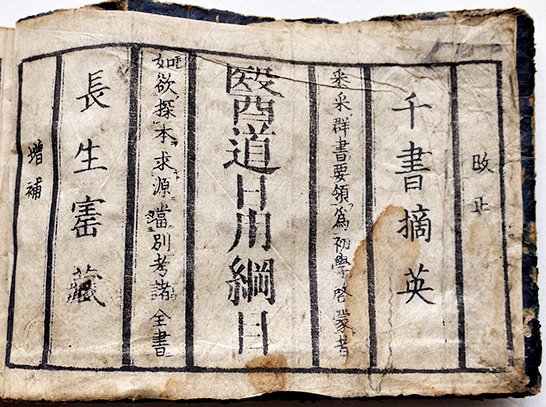 改正
千書摘英
悉采群書要領爲初學啓蒙者
醫道日用綱目
如欲探本求源當別考諸全書
長生窰藏
增補